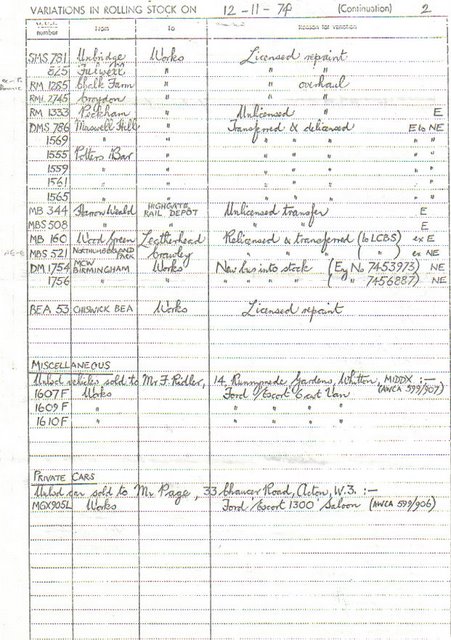 VARIATIONS IN ROLLING STOCK ON 12-11-74 (Continuation) 2
Vehicle number From To Reason for variation
SMS 781 Uxbridge Works Licensed repaint
825 Fulwell " " "
RM 1285 Chalk Farm " " overhaul
RML 2745 Croydon " " "
RM 1333 Peckham " Unlicensed " E
DMS 786 Muswell Hill " Transferred & delicensed E to NE
1569 " " " " " " "
1555 Potters Bar " " " " " "
1559 " " " " " " "
1561 " " " " " " "
1565 " " " " " " "
MB 344 Harrow Weald HIGHGATE RAIL DEPOT Unlicensed transfer E
MBS 508 " " " " E
MB 160 Wood Green Leatherhead Relicensed & transferred (to LCBS) ex E
MBS 521 NORTHUMBERLAND PARK Crawley " " " ( " ) ex NE
DM 1754 MCW BIRMINGHAM Works New bus into stock (Eng No 7453973) NE
1756 " " " " " " ( " 7456887) NE
BEA 53 CHISWICK BEA Works Licensed repaint
MISCELLANEOUS
Unlsd vehicles sold to Mr F. Ridler, 14 Runnymede Gardens, Whitton, MIDDX :—
1607F Works Ford 'Escort' 6cwt Van (AWCA 599/907)
1609F " " " " "
1610F " " " " "
PRIVATE CARS
Unlsd car sold to Mr Page, 33 Chaucer Road, Acton, W.3. :—
MGX905L Works Ford 'Escort 1300' Saloon (AWCA 599/906)